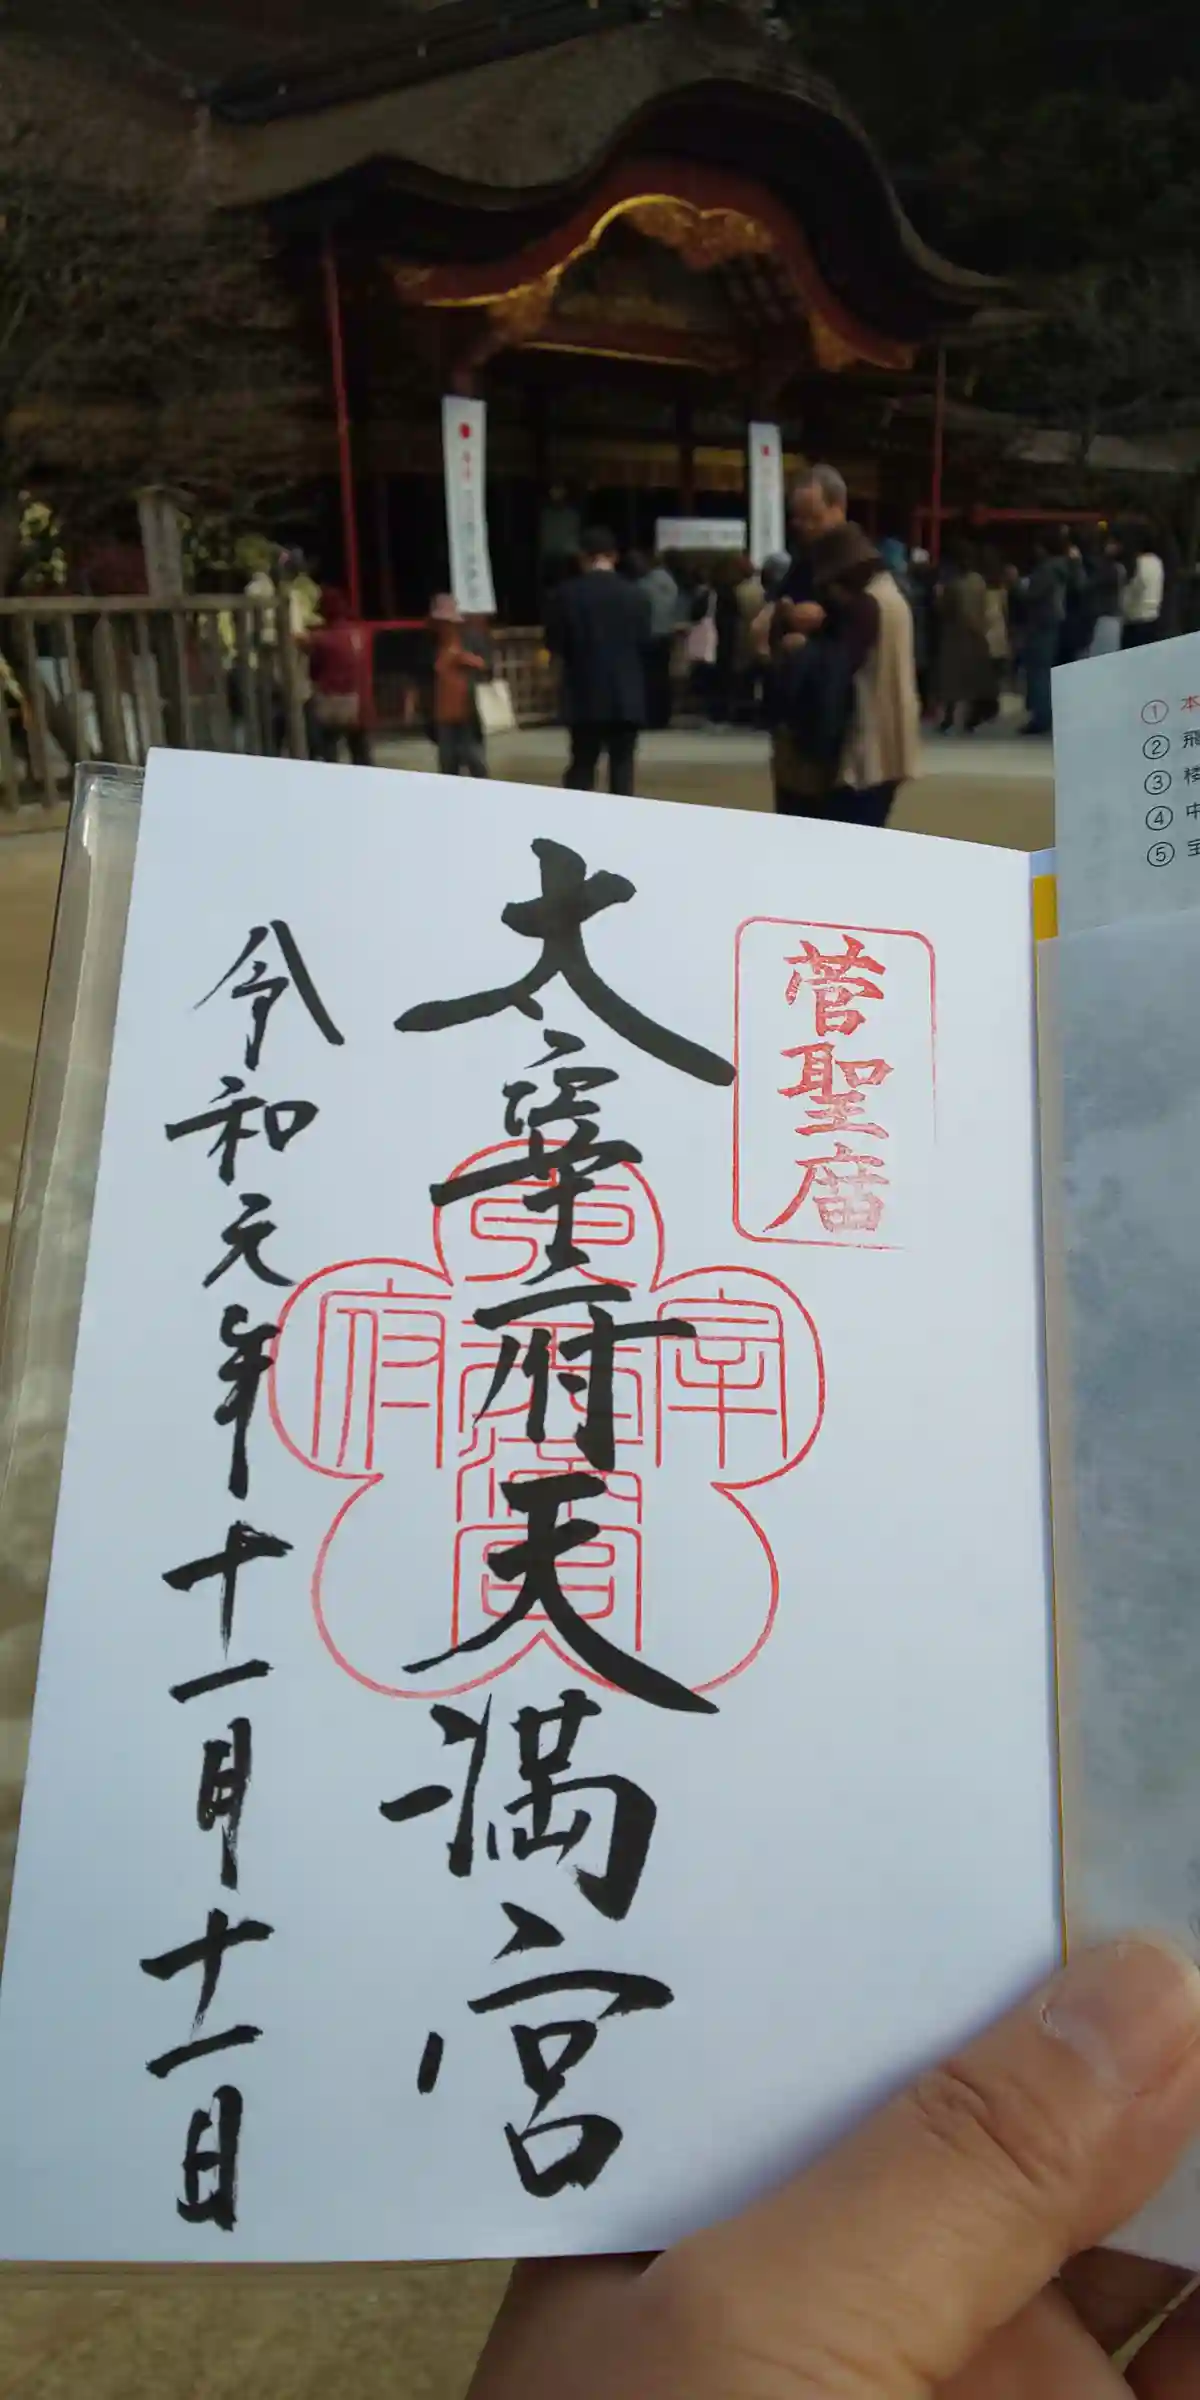 菅聖廟
太宰府天満宮
令和元年十一月十一日
① 本
② 飛
③ 楼
④ 中
⑤ 宝